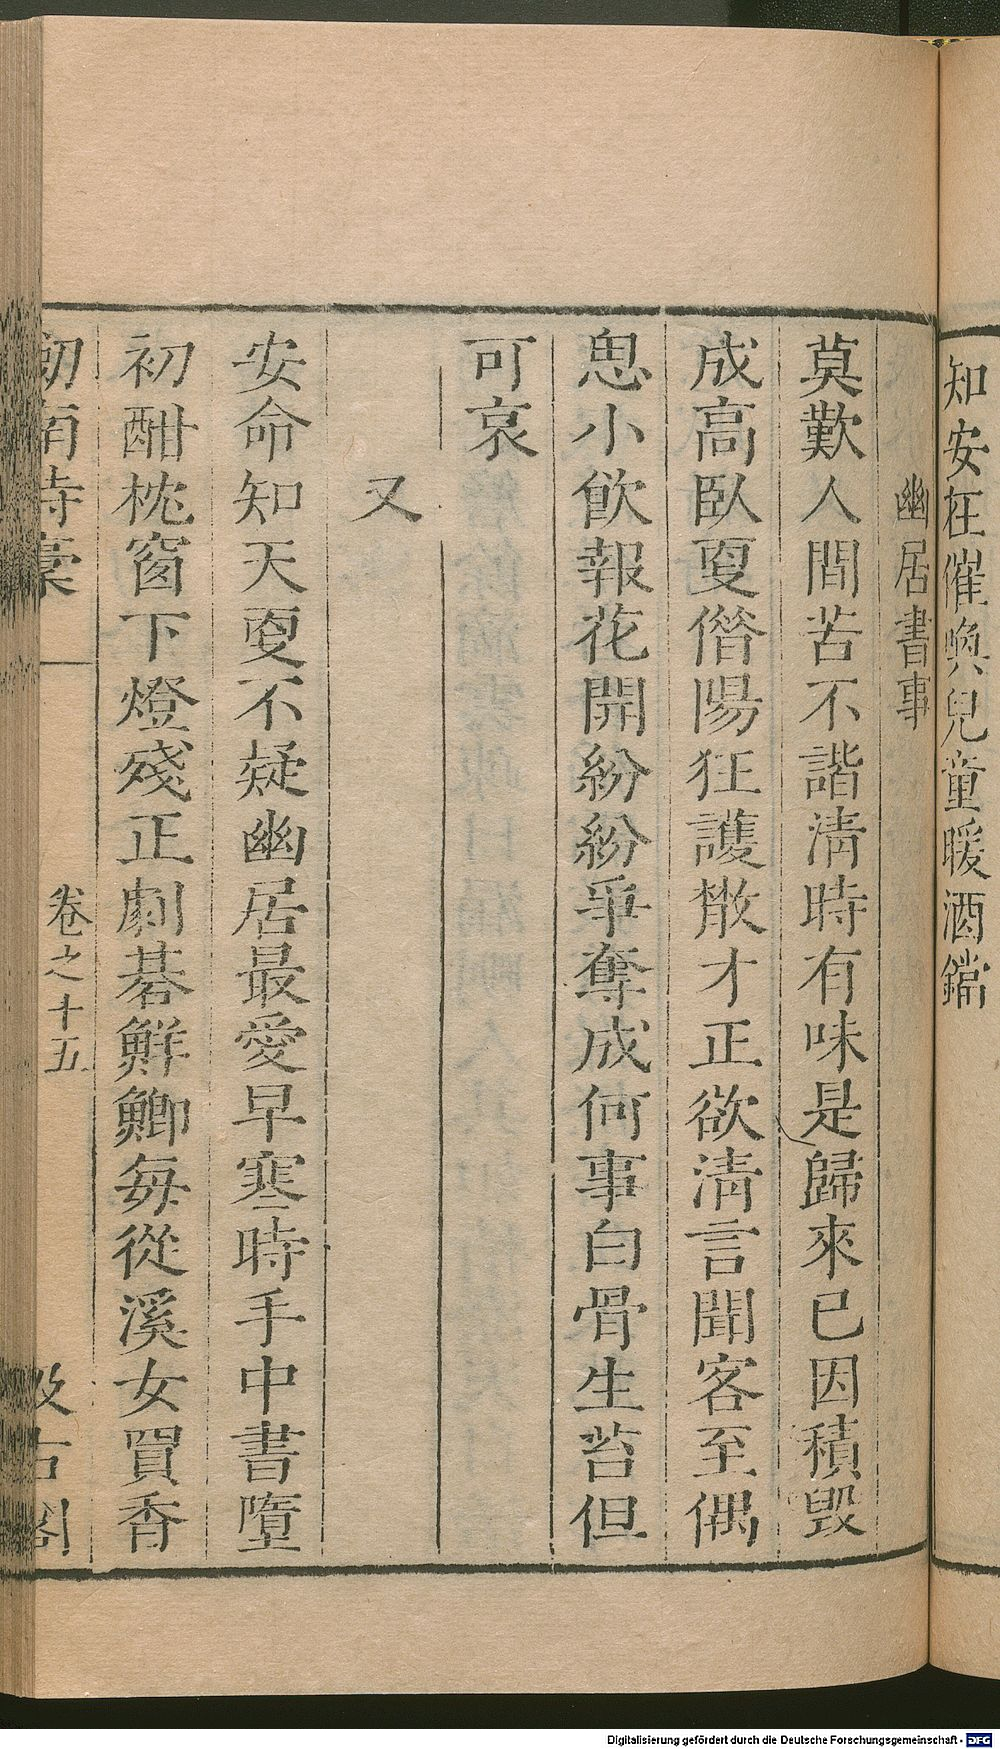 知安在催喚兒童暖酒鐺
幽居書事
莫歎人間苦不諧清時有味是歸來已因積毀
成高臥更僭陽狂護散才正欲清言聞客至偶
思小飲報花開紛紛爭奪成何事白骨生苔但
可哀
又
安命知天更不疑幽居最愛早寒時手中書墮
初酣枕窗下燈殘正劇棊鮮鯽每從溪女買香
劒南詩稾
卷之十五
汲古閣
Digitalisierung gefördert durch die Deutsche Forschungsgemeinschaft - DFG